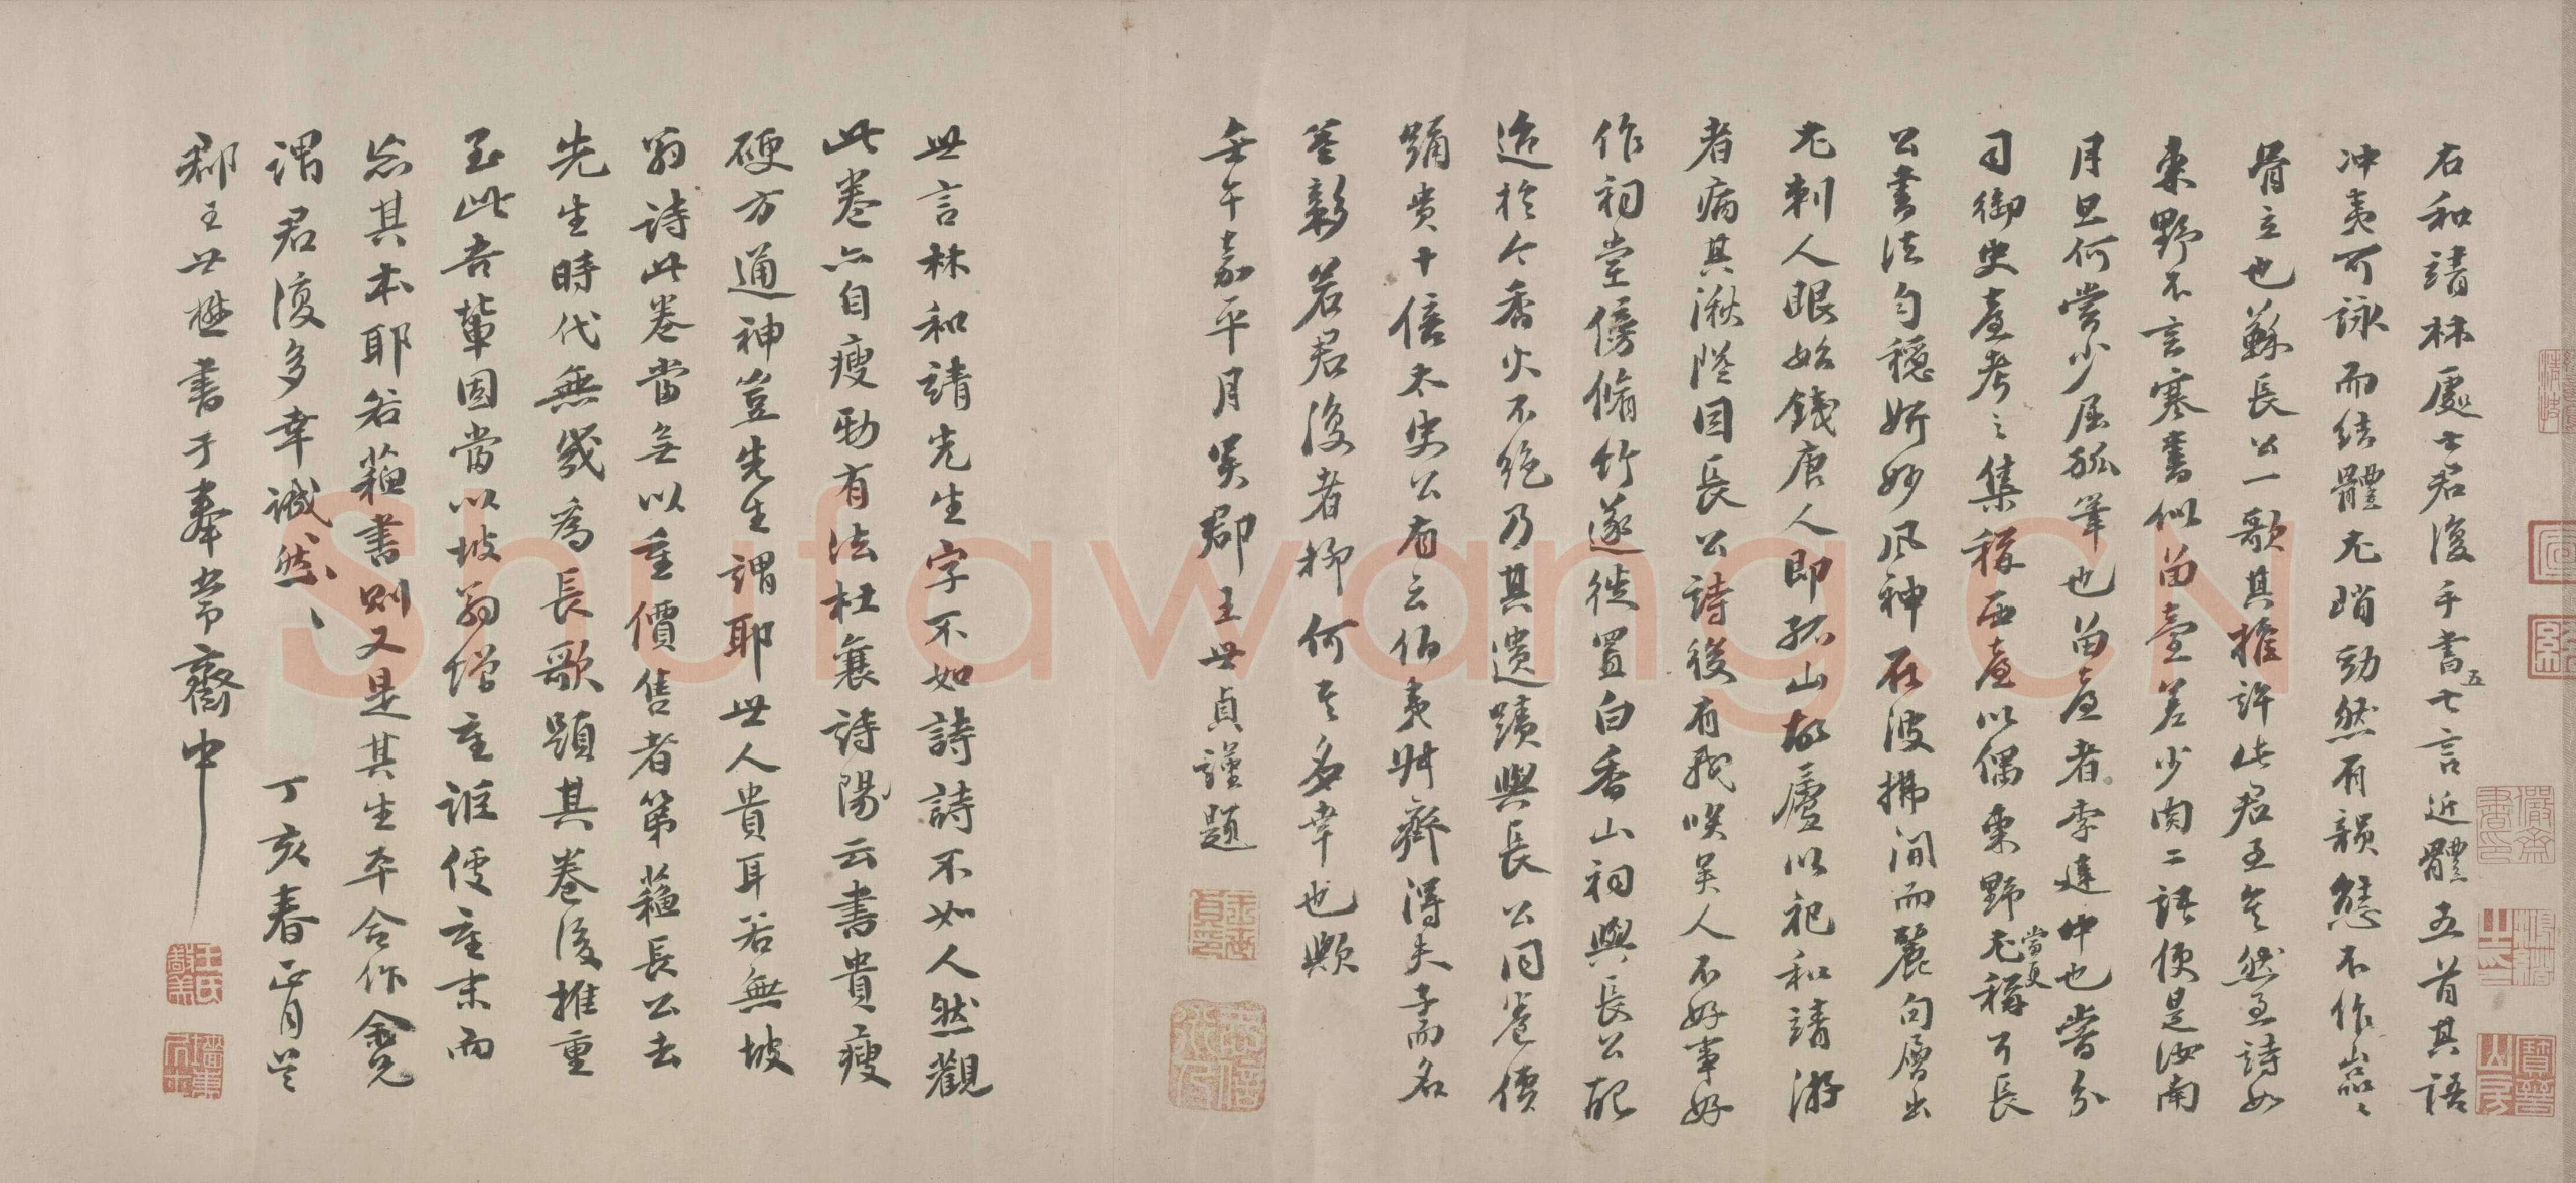 右和靖林處士君復手書七言近體五首其語
五
冲夷可詠而結體尤峭勁然有韻態不作喦〻
骨立也蘇長公一歌其推許此君至矣然至詩如
東野不言寒書似留臺差少肉二語便是汝南
月旦何嘗少屈狐筆也留臺者李建中也嘗分
司御史臺考之集稱西臺以偶東野尤稱可長
當更
公書法勻穩妍妙風神在波拂間而麗句層出
尤刺人眼始錢唐人即孤山故廬以祀和靖游
者病其湫隘因長公詩後有我笑吳人不好事好
作祠堂傍脩竹遂徙置白香山祠與長公配
迨於今香火不絕乃其遺蹟與長公同卷價
踊貴十倍太史公有云伯夷叔齊得夫子而名
益彰若君復者抑何其多幸也歟
壬午嘉平月吳郡王世貞謹題
世言林和靖先生字不如詩詩不如人然觀
此卷亦自瘦勁有法杜襄詩陽云書貴瘦
硬方通神豈先生謂耶世人貴耳若無坡
翁詩此卷當無以重價售者第蘓長公去
先生時代無幾為長歌題其卷後推重
至此吾輩固當以坡翁增重誰使重末而
忘其本耶若蘓書則又是其生平合作家兄
謂君復多幸誠然〻丁亥春正月吳
郡王世懋書于奉常齋中
Shufawang.CN